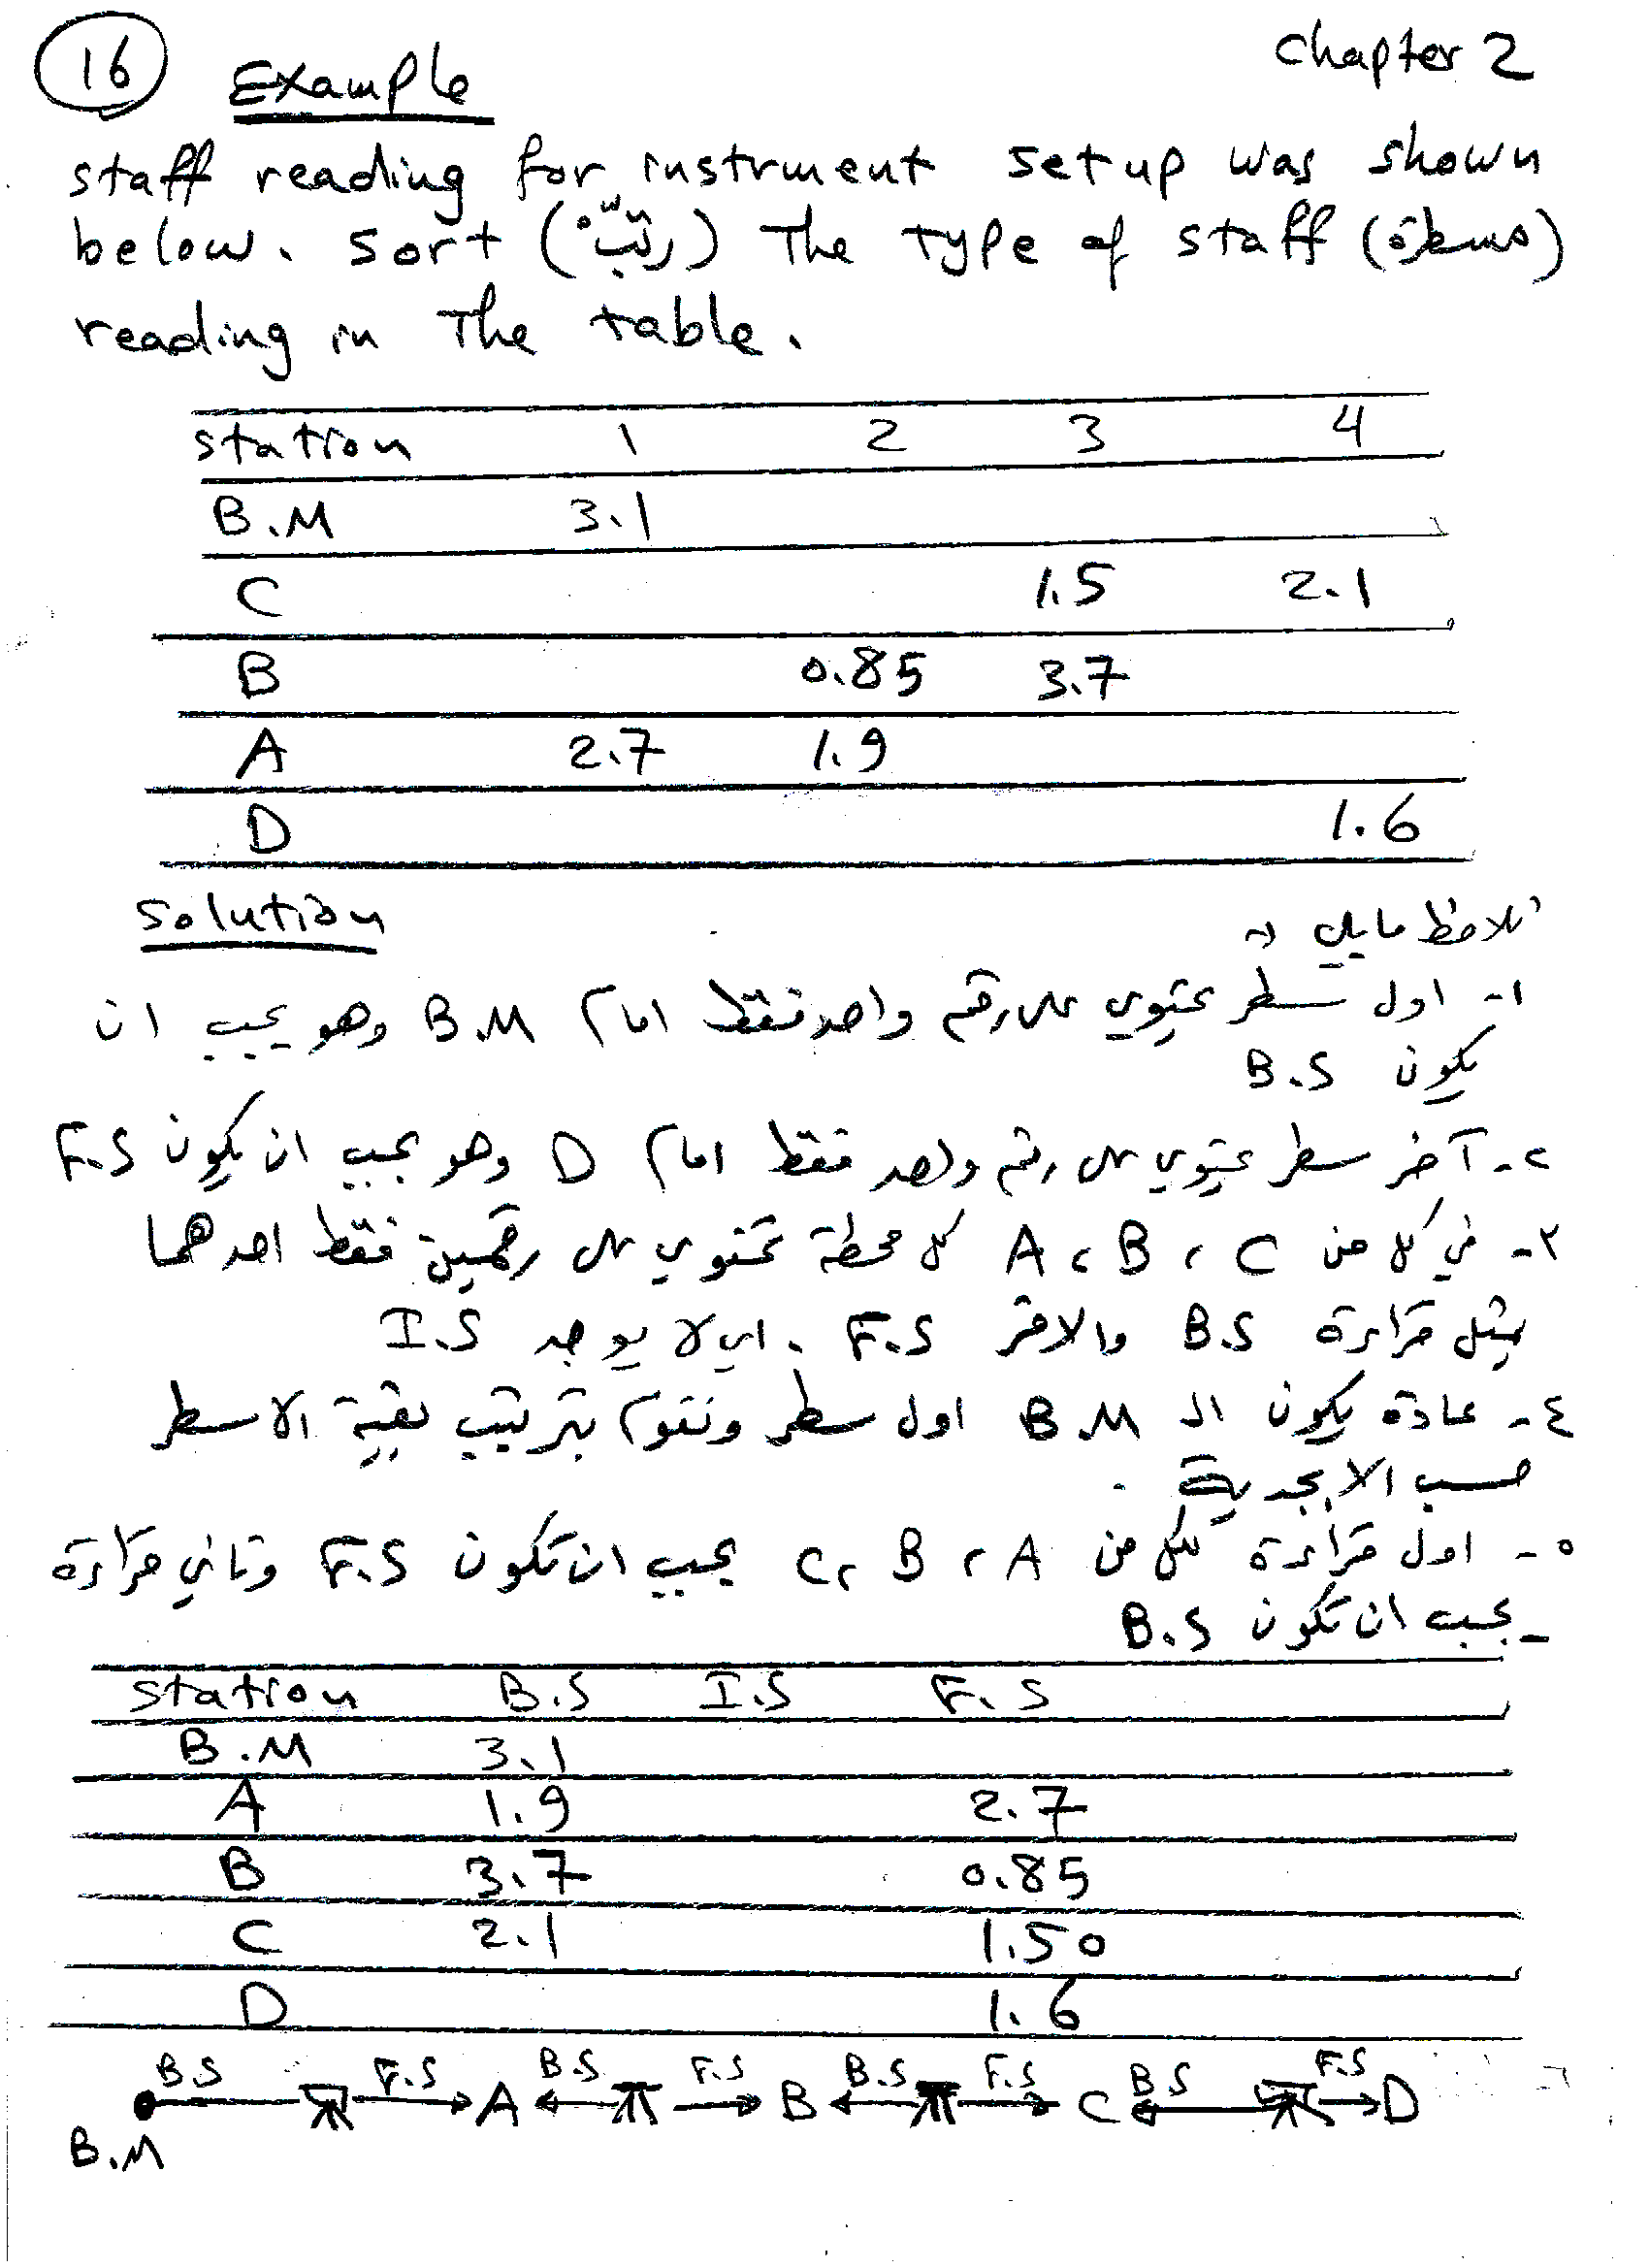 16 Example Chapter 2
staff reading for instrument setup was shown
below. Sort (رتّب) The type of staff (مسطرة)
reading in The table.
station 1 2 3 4
B.M 3.1
C 1.5 2.1
B 0.85 3.7
A 2.7 1.9
D 1.6
solution
نلاحظ مايلي :-
١- اول سطر يحتوي على رقم واحد فقط امام B.M وهو يجب ان
يكون B.S
٢- آخر سطر يحتوي على رقم واحد فقط امام D وهو يجب ان يكون F.S
٣- في كل من A , B , C كل محطة تحتوي على رقمين فقط احدهما
يمثل قراءة B.S والاخر F.S . اي لا يوجد I.S
٤- عادة يكون الـ B.M اول سطر ونقوم بترتيب بقية الاسطر
حسب الابجدية .
٥- اول قراءة لكل من A , B , C يجب ان تكون F.S وثاني قراءة
يجب ان تكون B.S
station B.S I.S F.S
B.M 3.1
A 1.9 2.7
B 3.7 0.85
C 2.1 1.50
D 1.6
B.S F.S B.S F.S B.S F.S B.S F.S ٦-
A B C D
B.M